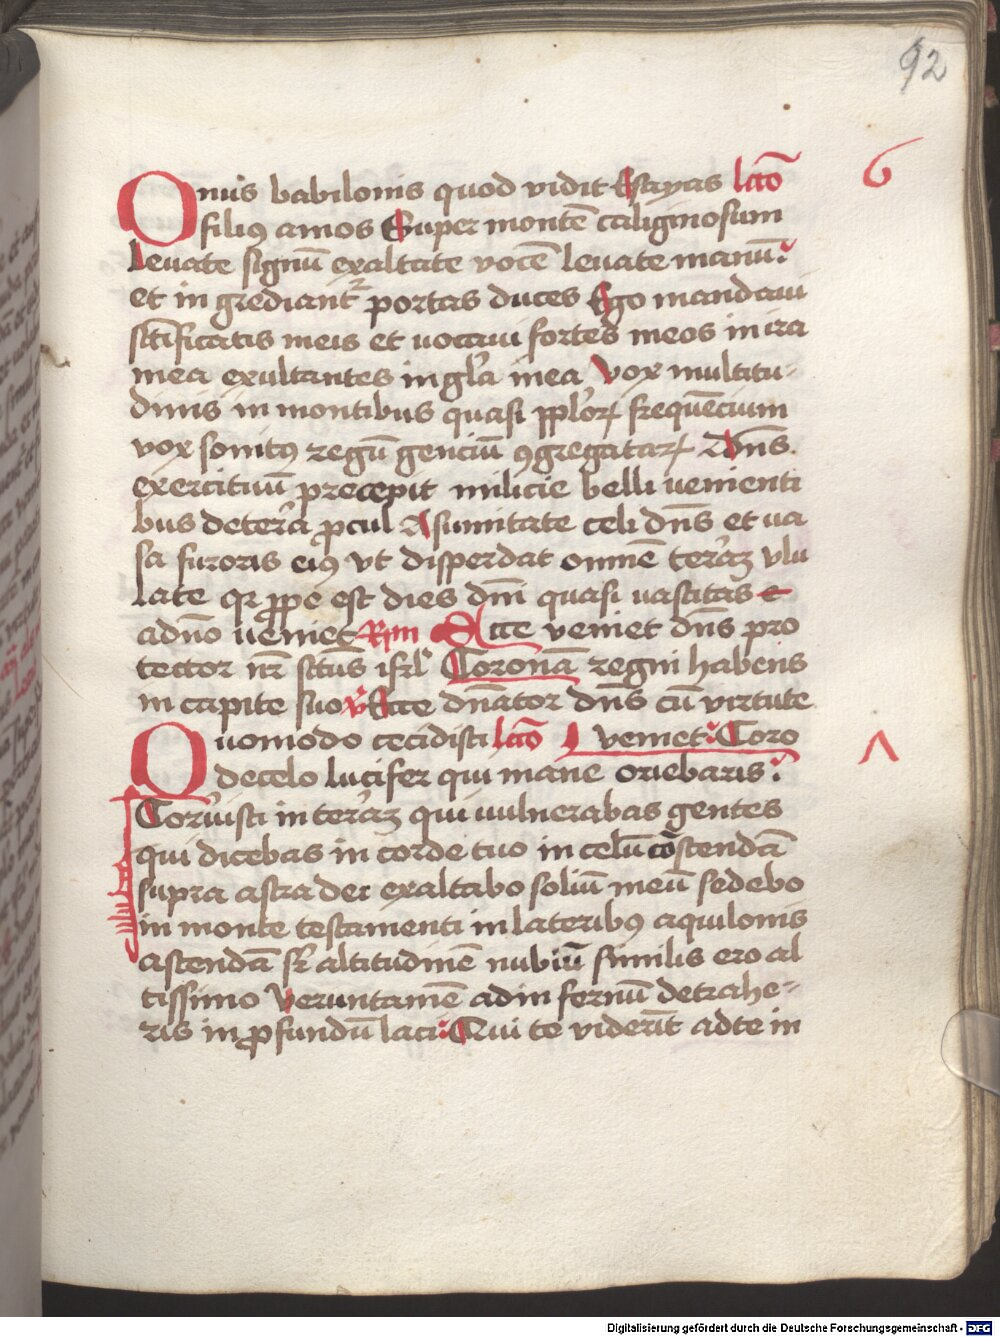 92
Onus babilonis quod vidit Esayas lcõ 6
filiꝰ amos Super montẽ caliginosum
Leuate signũ exaltate vocẽ leuate manũ
et in grediantᷣ portas duces Ego mandaui
sc̃ificatis meis et uocaui fortes meos in ira
mea exultantes in gl̃a mea Vox multitu-
dinis in montibus quasi ppl̃oꝝ frequẽcium
vox sonitꝰ regũ genciũ ꝯgregataꝝ Dñs
exercituũ precepit milicie belli uenienti
bus de ter̃a ꝓcul A sumitate celi dñs et ua
sa furoris eiꝰ vt disperdat omnẽ ter̃aꝫ vlu
late qꝛ ꝓpe est dies dñi quasi uastitas
a dño ueniet Rm̃ Ecce veniet dñs pro
tector nr̃ sc̃us isrl̃ Coronã regni habens
in capite suo v̾ Ecce dñator dñs cũ virtute
Quomodo cecidisti lcõ veniet Coro
de celo lucifer qui mane oriebaris 7
Corruisti in ter̃aꝫ qui uulnerabas gentes
qui dicebas in corde tuo in celũ cõscendã
supra astra dei exaltabo soliũ meũ sedebo
in monte testamenti in lateribꝰ aquilonis
ascendã sr̃ altitudinẽ nubiũ similis ero al
tissimo Veruntamẽ ad in fernũ detrahe-
ris in ꝓfundũ laci Qui te viderĩt ad te in
Digitalisierung gefördert durch die Deutsche Forschungsgemeinschaft - DFG